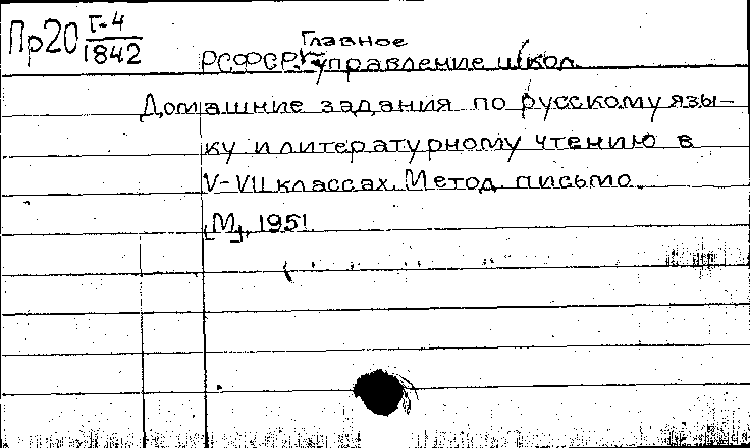 Пр20 Г-4
1842
Главное
РСФСР. управление школ.
Домашние задания по русскому язы-
ку и литературному чтению в
V-VII классах. Метод. письмо.
[М], 1951.